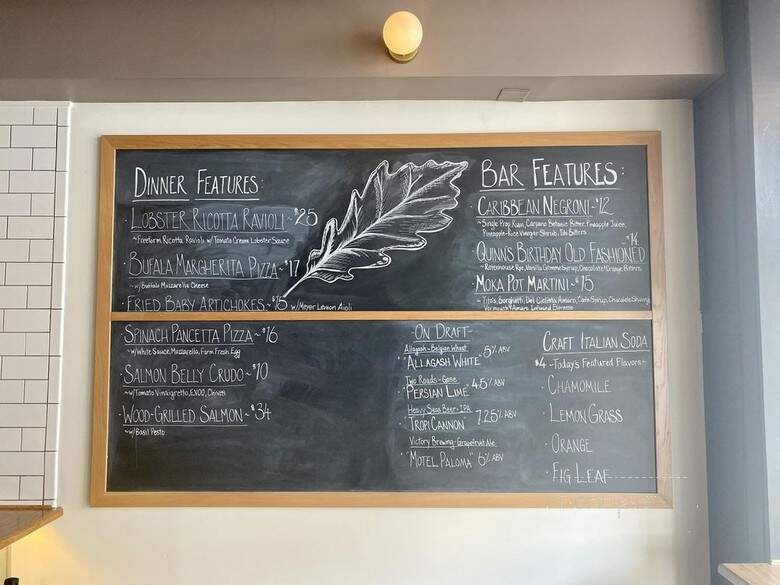 DINNER FEATURES:
· LOBSTER RICOTTA RAVIOLI ~ $25
~ Freeform Ricotta Ravioli w/ Tomato Cream Lobster Sauce
· BUFALA MARGHERITA PIZZA ~ $17
~ w/ Buffalo Mozzarella Cheese
· FRIED BABY ARTICHOKES ~ $15 w/ Meyer Lemon Aioli
· SPINACH PANCETTA PIZZA ~ $16
~ w/ White Sauce, Mozzarella, Farm Fresh Egg
· SALMON BELLY CRUDO ~ $10
~ w/ Tomato Vinaigrette, EVOO, Chives
· WOOD-GRILLED SALMON ~ $34
~ w/ Basil Pesto
BAR FEATURES:
· CARIBBEAN NEGRONI ~ $12
~ Single Prop Rum, Carpano Botanic Bitter, Pineapple Juice,
Pineapple-Rice Vinegar Shrub, Tiki Bitters
· QUINN'S BIRTHDAY OLD FASHIONED ~ $14
~ Rittenhouse Rye, Vanilla Syrup, Chocolate & Orange Bitters
· MOKA POT MARTINI ~ $15
~ Tito's, Borghetti, Amaro, Syrup,
Vermouth Amaro Infused Espresso
-ON DRAFT-
Allagash - Belgian Wheat
"ALLAGASH WHITE" 5% ABV
Two Roads - Gose
"PERSIAN LIME" 4.5% ABV
Heavy Seas Beer - IPA
"TROPICANNON" 7.25% ABV
Victory Brewing - Grapefruit Ale
"MOTEL PALOMA" 6% ABV
CRAFT ITALIAN SODA
$4 ~ Today's Featured Flavors ~
· CHAMOMILE
· LEMON GRASS
· ORANGE
· FIG LEAF